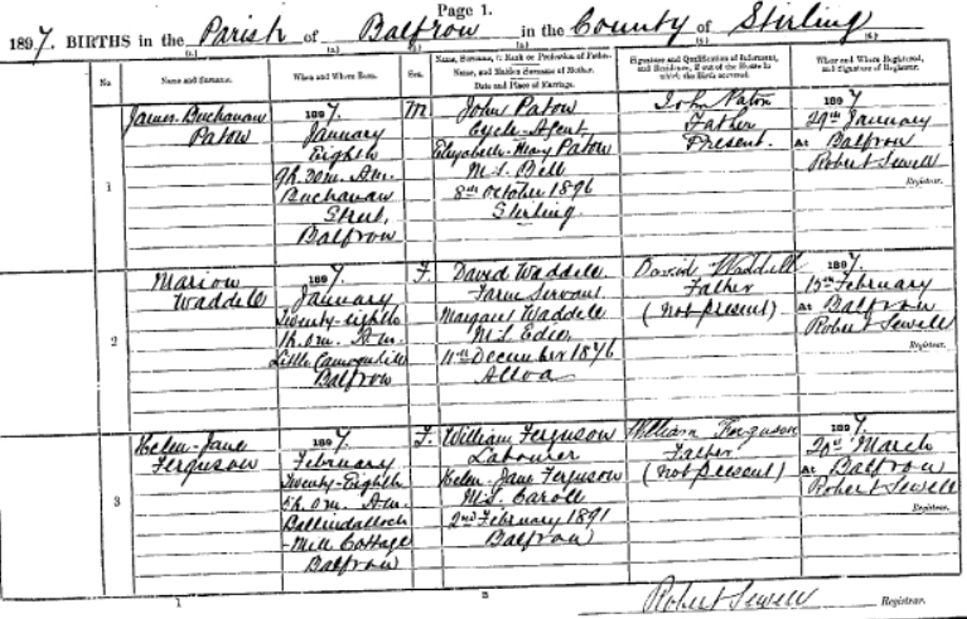 Page 1.
1897. BIRTHS in the Parish of Balfron in the County of Stirling
(1.) (2.) (3.) (4.) (5.) (6.)
No. Name and Surname. When and Where Born. Sex. Name, Surname, & Rank or Profession of Father. Name, and Maiden Surname of Mother. Date and Place of Marriage. Signature and Qualification of Informant, and Residence, if out of the House in which the Birth occurred. When and Where Registered, and Signature of Registrar.
1
James Buchanan
Paton
1897.
January
Eighth
9h. 30m. A.m.
Buchanan
Street,
Balfron
M
John Paton
Cycle-Agent,
Elizabeth-Mary Paton
M.S. Bell
8th October 1896
Stirling
John Paton
Father
Present.
1897
29th January
At Balfron
Robert Sewell
Registrar.
2
Marion
Waddell
1897.
January
Twenty-eighth
1h. 0m. A.m.
Little
Balfron
F.
David Waddell
Farm Servant
Margaret Waddell
M.S.
11th December 1876
Alloa
David Waddell
Father
(Not present)
1897.
15th February
At Balfron
Robert Sewell
Registrar.
3
Helen-Jane
Ferguson
1897.
February
Twenty-Eighth
5h. 0m. A.m.
Ballindalloch
-Mill Cottage
Balfron
F.
William Ferguson
Labourer
Helen-Jane Ferguson
M.S. Caroll
2nd February 1891
Balfron
William Ferguson
Father
(Not present)
1897.
20th March
At Balfron
Robert Sewell
Registrar.
Robert Sewell Registrar.